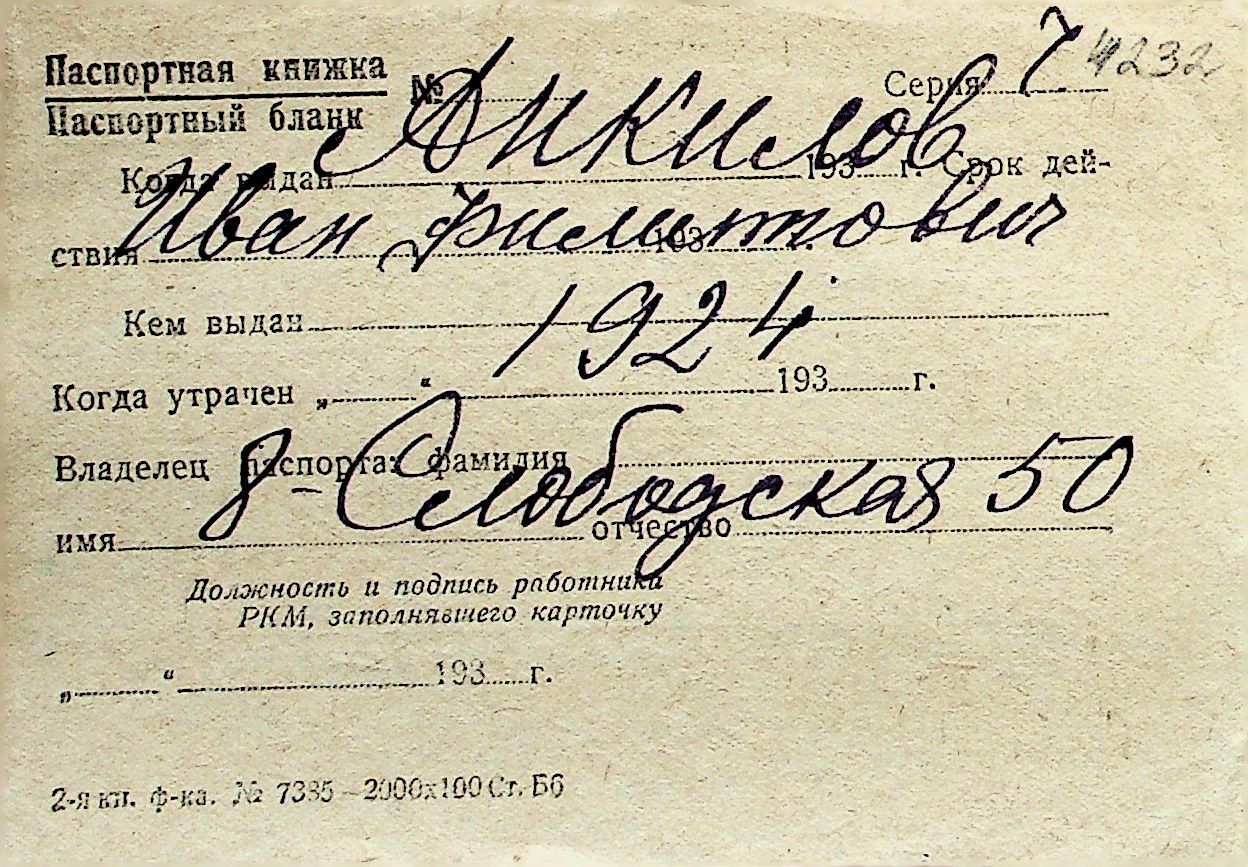 Паспортная книжка
Паспортный бланк
№ Серия 7 4232
Аникилов
Когда выдан 193 г. Срок дей-
Иван Филиппович
ствия 193
Кем выдан
1924
Когда утрачен „ “ 193 г.
Владелец паспорта: фамилия
8-Слободская 50
имя отчество
Должность и подпись работника
РКМ, заполнявшего карточку
„ “ 193 г.
2-я кн. ф-ка. № 7385—2000х100 Ст. Бб